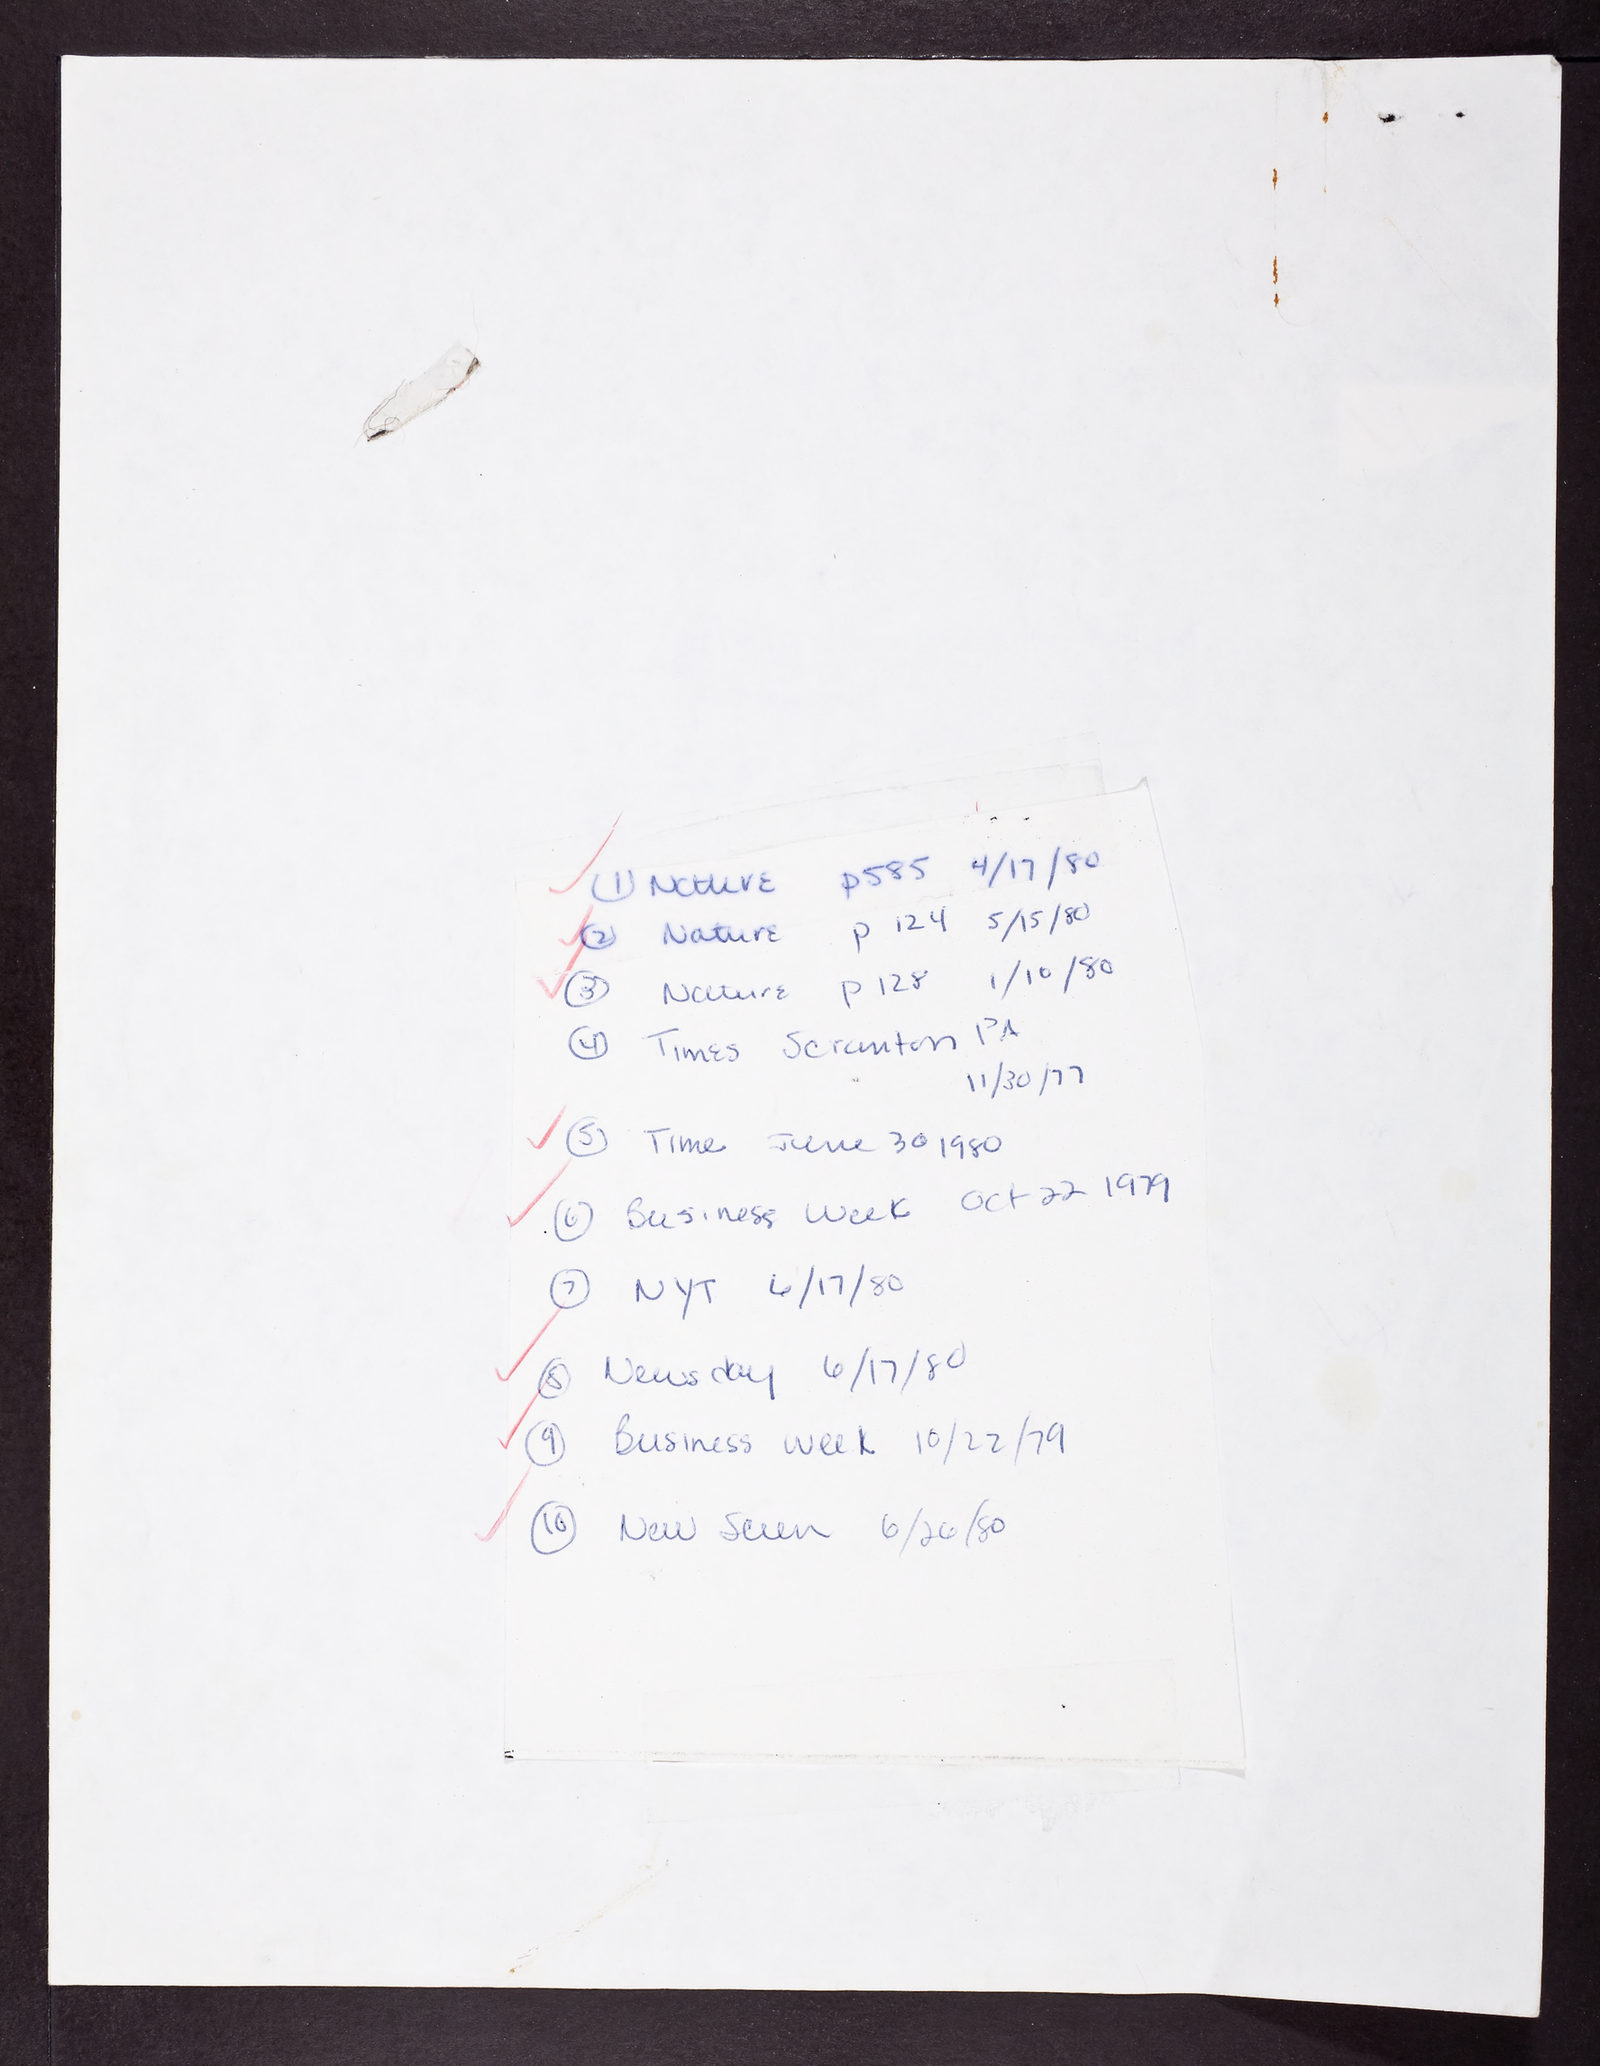 ✓ ① Nature p585 4/17/80
✓ ② Nature p 124 5/15/80
✓ ③ Nature p 128 1/10/80
④ Times Scranton PA
11/30/77
✓ ⑤ Time June 30 1980
✓ ⑥ Business Week Oct 22 1979
⑦ NYT 6/17/80
✓ ⑧ Newsday 6/17/80
✓ ⑨ Business Week 10/22/79
✓ ⑩ New Scien 6/26/80